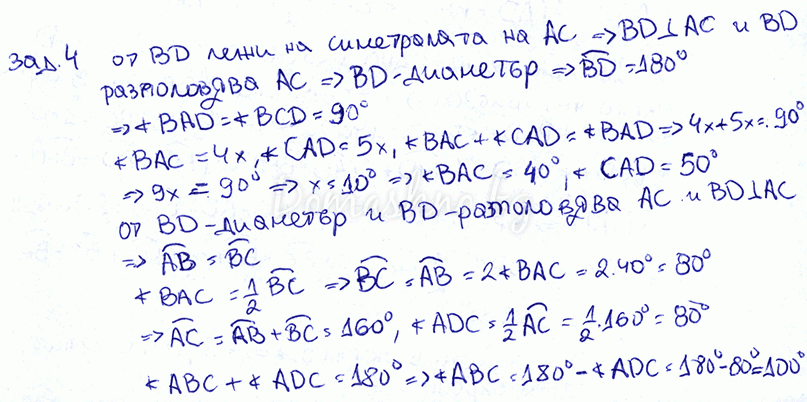 зад.4 от BD лежи на симетралата на AC ⇒ BD⊥AC и BD
разполовява AC ⇒ BD-диаметър ⇒ B͡D = 180°
⇒ ∢BAD = ∢BCD = 90°
∢BAC = 4x, ∢CAD = 5x, ∢BAC + ∢CAD = ∢BAD ⇒ 4x+5x = 90°
⇒ 9x = 90° ⇒ x = 10° ⇒ ∢BAC = 40°, ∢CAD = 50°
от BD-диаметър и BD-разполовява AC и BD⊥AC
⇒ A͡B = B͡C
∢BAC = 1/2 B͡C ⇒ B͡C = A͡B = 2∢BAC = 2.40° = 80°
⇒ A͡C = A͡B + B͡C = 160°, ∢ADC = 1/2 A͡C = 1/2.160° = 80°
∢ABC + ∢ADC = 180° ⇒ ∢ABC = 180° - ∢ADC = 180° - 80° = 100°